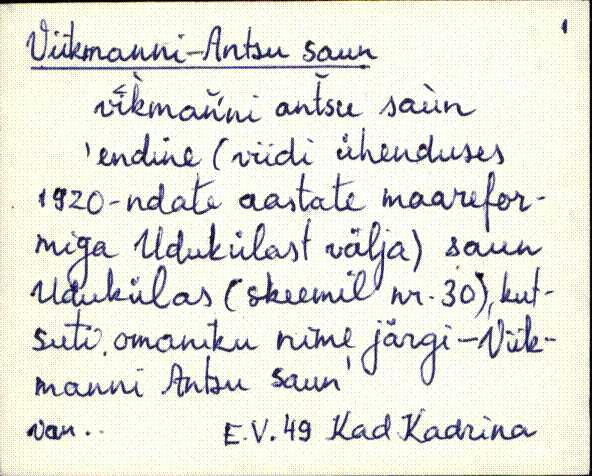 1
Viikmanni-Antsu saun
vi̬kmǹ̄ni antšu saùn
'endine (viidi ühenduses
1920-ndate aastate maarefor-
miga Udukülast välja) saun
Udukülas (skeemil nr. 30), kut-
suti omaniku nime järgi - Viik-
manni Antsu saun'
van..
E.V. 49 Kad Kadrina